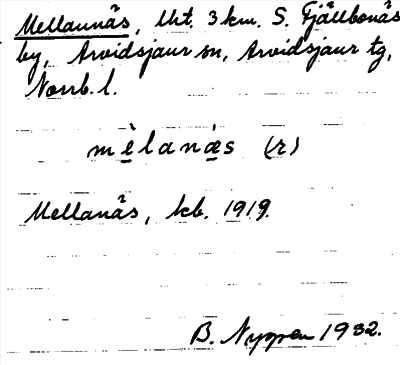 Mellannäs, lht. 3 km. S. Fjällbonäs
by, Arvidsjaur sn, Arvidsjaur tg,
Norrb. l.
mèlanạs (r)
Mellanäs, kb. 1919.
B. Nyman 1932.